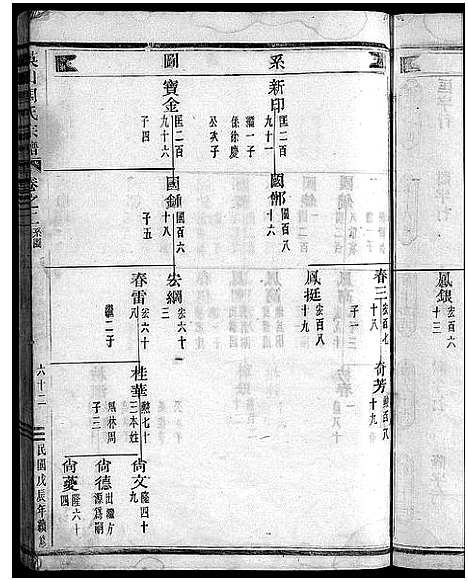 鳳銀
宏百六
十三
系
圖
新印
匡二百
九十一
繼一子
係徐慶
公次子
寶金
匡二百
九十六
子四
國郷
國百八
十六
國鏽
國百六
十八
子五
春三
宏百七
十八
子一
鳳挺
宏百八
十九
宏綱
宏六十
三
春雷
宏六十
八
繼二子
奇芳
勲百八
十九
桂華
勲七十
三本姓
鳳林周
子三
尙文
隆四十
九
尙德
出繼方
源爲嗣
尙夔
隆六十
四
周氏宗譜
卷之二
系圖
六十二
民國戊辰年續修